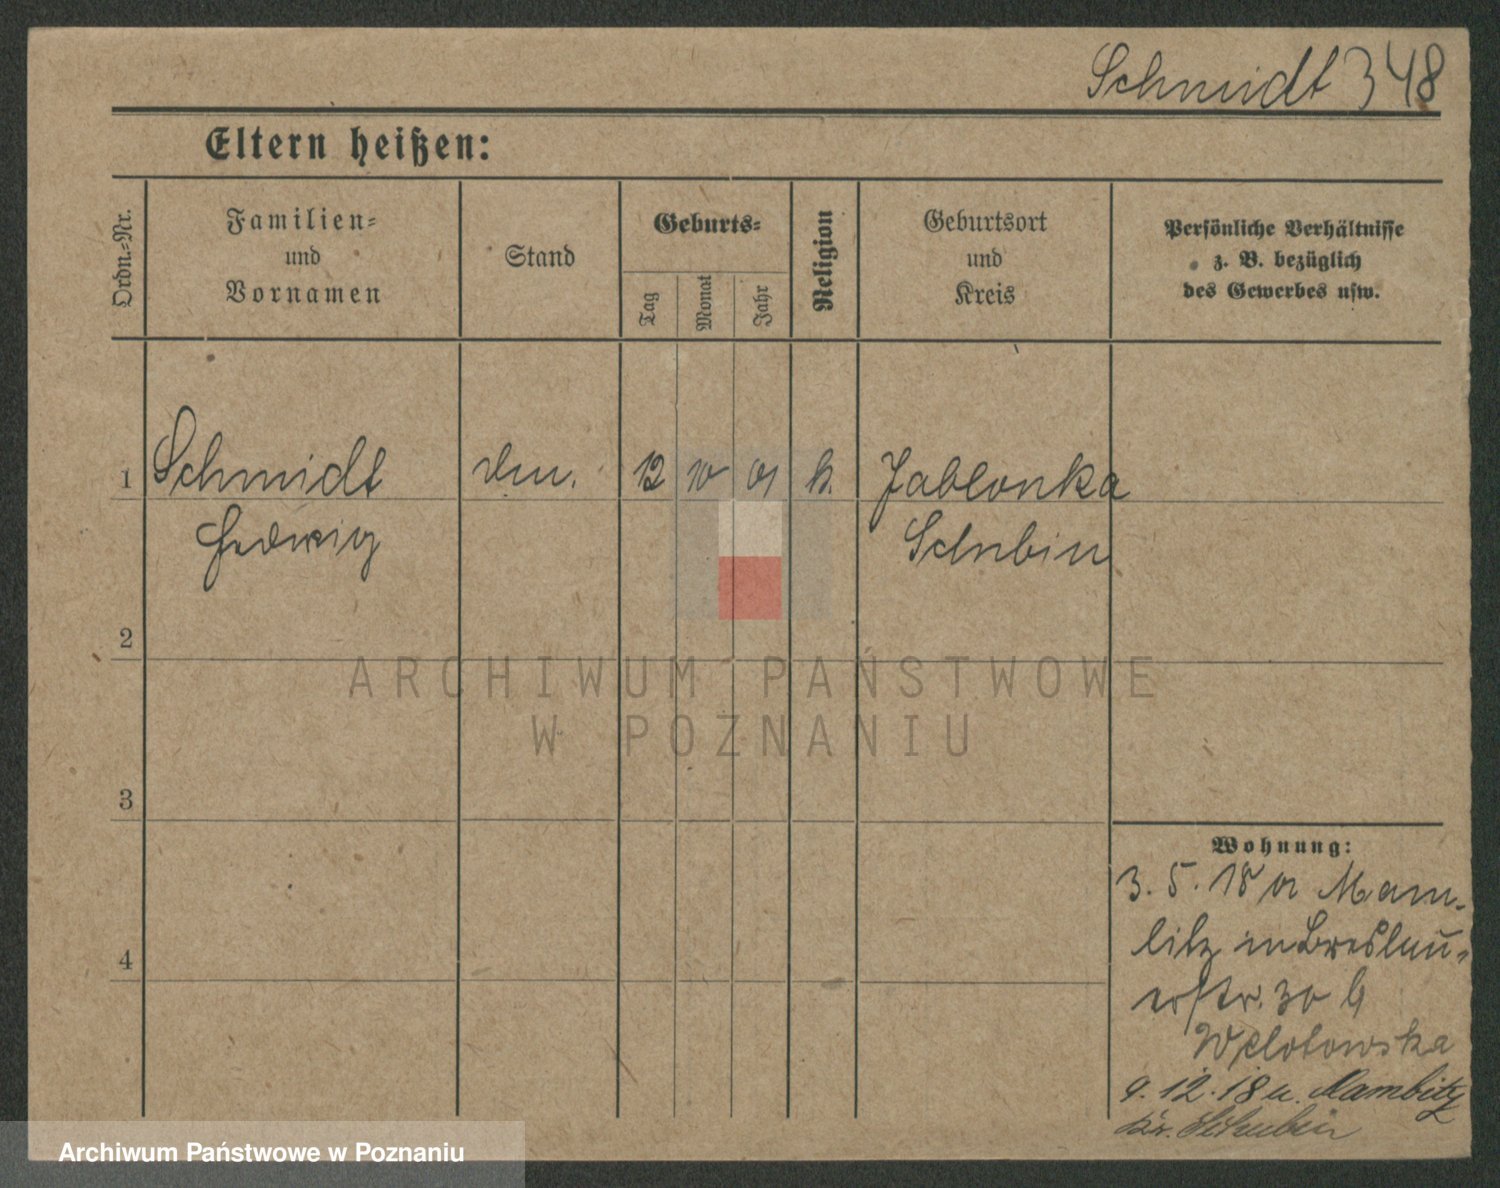 Schmidt 348
Eltern heißen:
Ordn.-Nr.
Familien-
und
Vornamen
Stand
Geburts-
Tag
Monat
Jahr
Religion
Geburtsort
und
Kreis
Persönliche Verhältnisse
z. B. bezüglich
des Gewerbes usw.
1 Schmidt 12 10 01 k. Jablonka
Hedwig Schubin
2
3
4
Wohnung:
3. 5. 18 a Mam-
litz in Breslau-
erstr. 30 b
9. 12. 18 n. Mamlitz
Kr. Schubin
ARCHIWUM PAŃSTWOWE
W POZNANIU
Archiwum Państwowe w Poznaniu